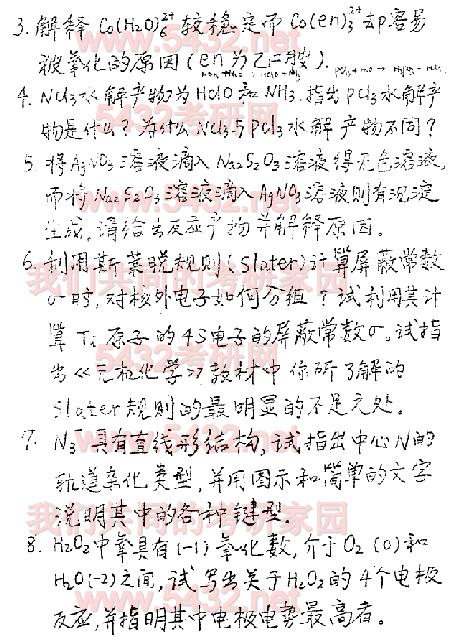 3. 解释 Co(H₂O)₆²⁺ 较稳定而 Co(en)₃²⁺ 却容易
被氧化的原因(en为乙二胺).
4. NCl₃水解产物为HClO和NH₃. 指出PCl₃水解产
物是什么? 为什么NCl₃与PCl₃水解产物不同?
5. 将AgNO₃溶液滴入Na₂S₂O₃溶液得无色溶液,
而将Na₂S₂O₃溶液滴入AgNO₃溶液则有沉淀
生成, 请给出反应产物并解释原因。
6. 利用斯莱脱规则(Slater)计算屏蔽常数
σ时, 对核外电子如何分组? 试利用其计
算Ti原子的4S电子的屏蔽常数σ. 试指
出《无机化学》教材中你所了解的
Slater规则的最明显的不足之处。
7. N₃⁻具有直线形结构, 试指出中心N的
轨道杂化类型, 并用图示和简单的文字
说明其中的各种键型.
8. H₂O₂中氧具有(-1)氧化数, 介于O₂(0)和
H₂O(-2)之间, 试写出关于H₂O₂的4个电极
反应, 并指明其中电极电势最高者。
www.5432.net
5432考研网
我们共同的考研家园